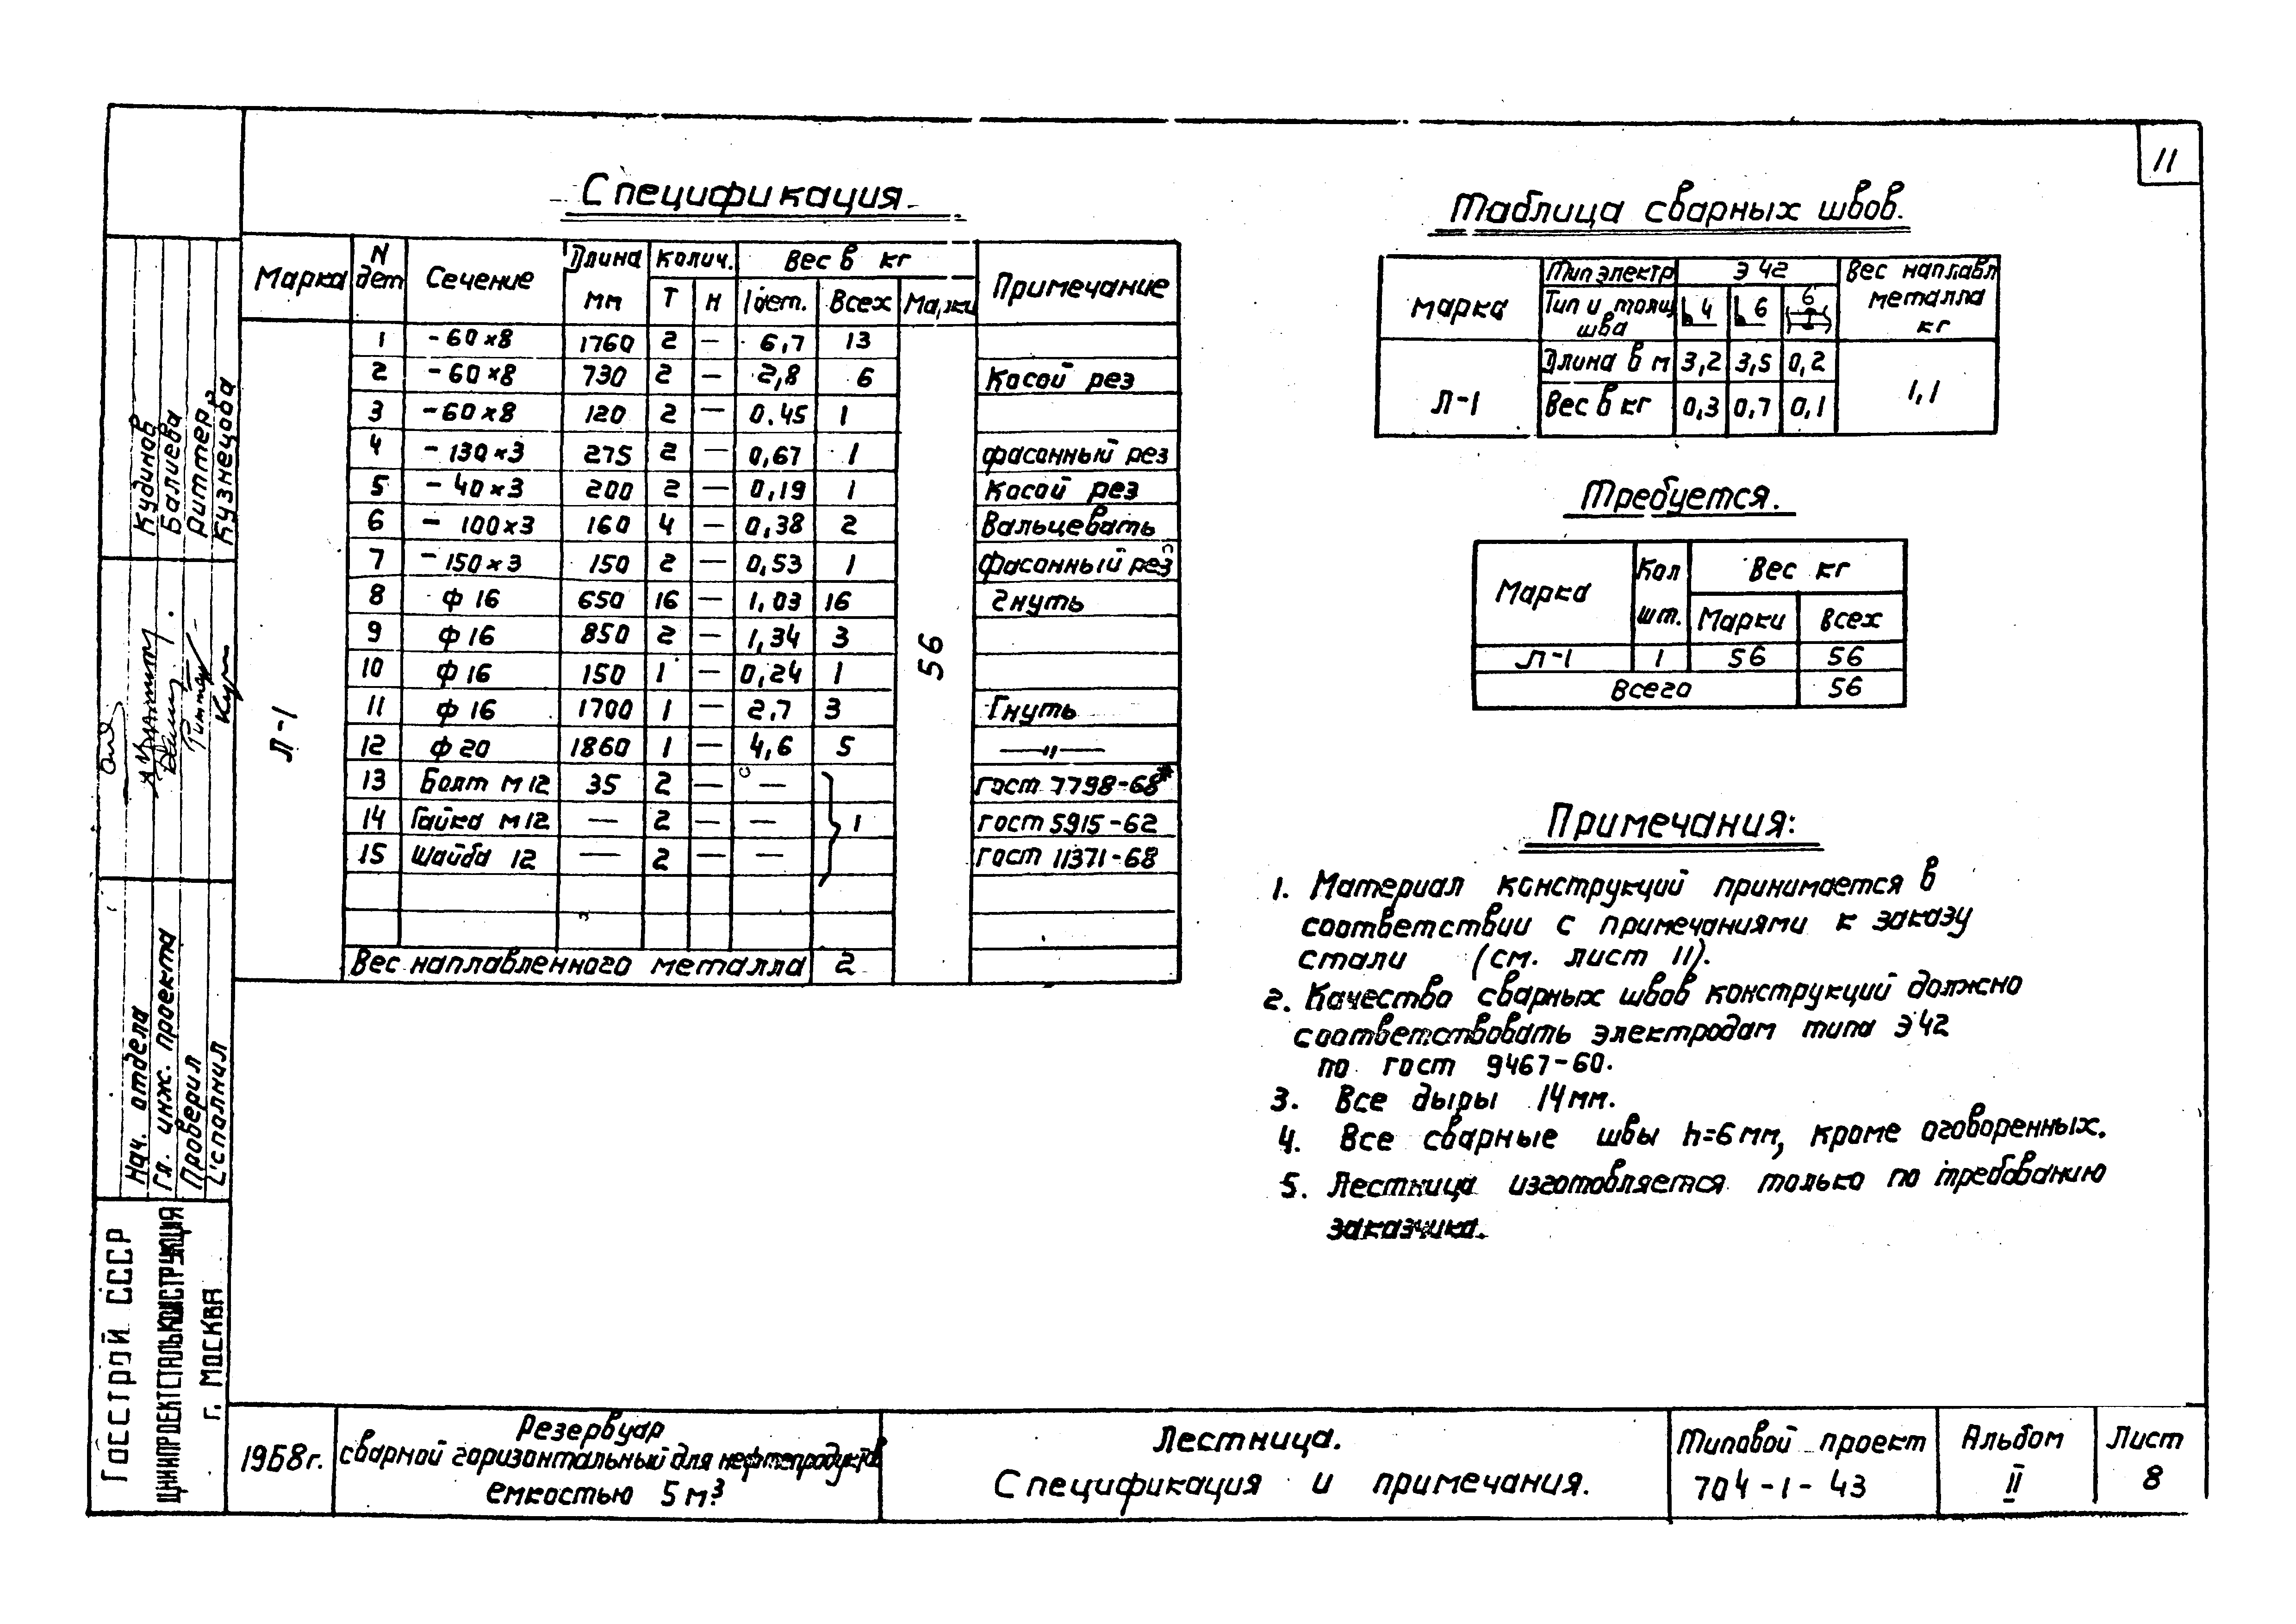 11
Спецификация
Марка | N дет | Сечение | Длина мм | Колич. Т | Н | Вес в кг 1 дет. | Всех | Марки | Примечание
Л-1 | 56
1 | -60×8 | 1760 | 2 | — | 6,7 | 13
2 | -60×8 | 730 | 2 | — | 2,8 | 6 | Косой рез
3 | -60×8 | 120 | 2 | — | 0.45 | 1
4 | -130×3 | 275 | 2 | — | 0,67 | 1 | фасонный рез
5 | -40×3 | 200 | 2 | — | 0,19 | 1 | Косой рез
6 | -100×3 | 160 | 4 | — | 0,38 | 2 | Вальцевать
7 | -150×3 | 150 | 2 | — | 0,53 | 1 | Фасонный рез
8 | ф 16 | 650 | 16 | — | 1,03 | 16 | гнуть
9 | ф 16 | 850 | 2 | — | 1,34 | 3
10 | ф 16 | 150 | 1 | — | 0,24 | 1
11 | ф 16 | 1700 | 1 | — | 2,7 | 3 | Гнуть
12 | ф 20 | 1860 | 1 | — | 4,6 | 5 | —"—
13 | Болт М12 | 35 | 2 | — | — | гост 7798-68*
14 | Гайка М12 | — | 2 | — | — | 1 | гост 5915-62
15 | Шайба 12 | — | 2 | — | — | гост 11371-68
Вес наплавленного металла | 2
Таблица сварных швов.
марка | Тип электр | Э 42 | Вес наплавл металла кг
Тип и толщ шва | 4 | 6 | 6
Л-1 | Длина в м | 3,2 | 3,5 | 0,2 | 1,1
Вес в кг | 0,3 | 0,7 | 0,1
Требуется.
Марка | Кол шт. | Вес кг
Марки | Всех
Л-1 | 1 | 56 | 56
Всего | 56
Примечания:
1. Материал конструкций принимается в
соответствии с примечаниями к заказу
стали (см. лист 11).
2. Качество сварных швов конструкций должно
соответствовать электродам типа Э42
по гост 9467-60.
3. Все дыры 14мм.
4. Все сварные швы h=6мм, кроме оговоренных.
5. Лестница изготовляется только по требованию
заказчика.
Кудинов
Валиева
Риттер
Кузнецова
Нач. отдела
Гл. инж. проекта
Проверил
Исполнил
Госстрой СССР
ЦНИИПРОЕКТСТАЛЬКОНСТРУКЦИЯ
г. МОСКВА
1968г.
Резервуар
сварной горизонтальный для нефтепродуктов
емкостью 5м³
Лестница.
Спецификация и примечания.
Типовой проект
704-1-43
Альбом
II
Лист
8